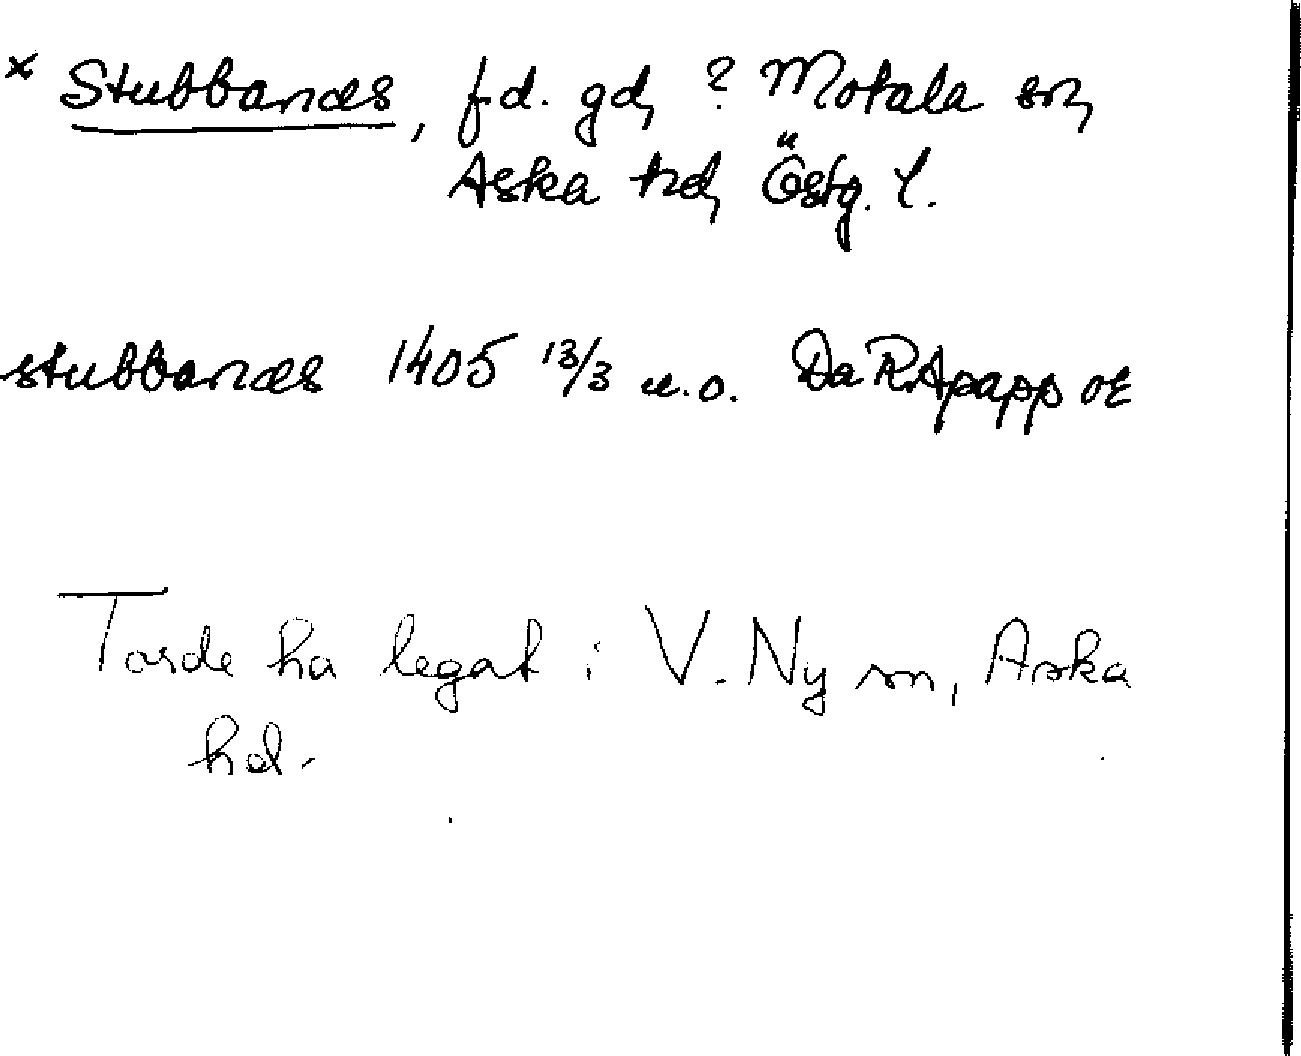 × Stubbanæs, fd. gd, ? Motala sn,
Aska hd, Östg. l.
stubbanæs 1405 13/3 u.o. Da RApapp or
Torde ha legat i V. Ny sn, Aska
hd.